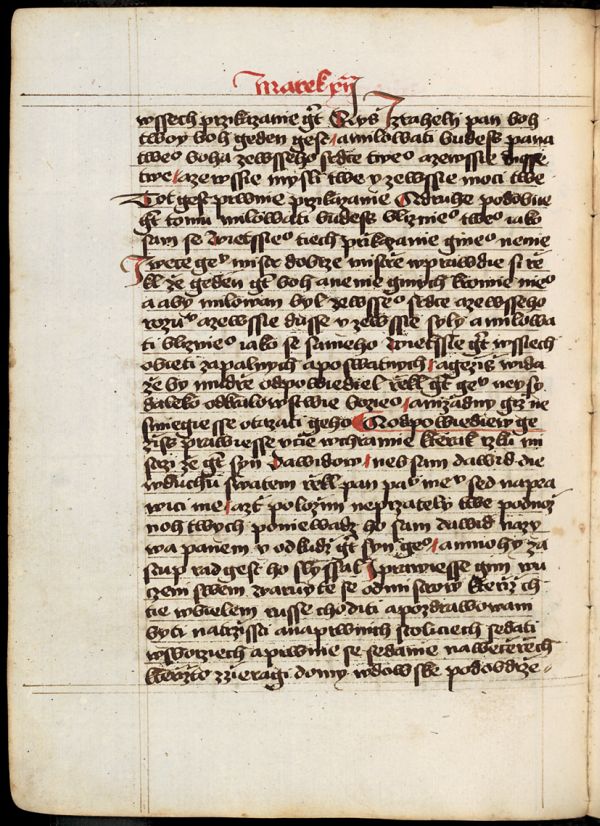 Marek xij
wssech przikazanie gt Slyss Izraheli pan boh
twoy boh geden gest a milowati budess pana
tweo boha zewsseho srdce tweo azewssie dusse
twe azewssie mysli twe y zewssie moci twe
Tot gest prwnie przikazanie A druhe podobne
gt tomu milowati budess blizmieo tweo iako
sam se Wietssieo tiech prikazanie gineo nenie
I wece geu mistr dobrze mistrze wprawdie si rze
kl ze geden gt boh anenie ginych kromie nieo
a aby milowan byl zewsseo srdce azewsseho
rozuu azewssie dusse y zewssie syly a milowa
ti blizmieo iako se sameho Wietssie gt wssech
obieti zapalnych aposwatnych a gezis wida
ze by mudrze odpowiediel rzekl gt geu neysy
daleko odkralowstwie bozieo a nizadny giz ne
smiegiesse otazati geho A odpowiediew ge
zis prawiesse ucie wchramie kterak rzkú mi
strzi ze gt syn dawidow neb sam dawid die
wduchu swatem rzekl pan pau meu sed naprá
wici me azt polozim neprzately twe podnoz
noh twych poniewadz ho sam dawid nazy
wa panem y odkudz gt syn geo a mnohy za
stup rad gest ho slyssal I prawiesse gim wu
czem swem waruyte se odmistrow kteriz ch
tie wbielem russe choditi apozdrawowani
byti natrzissti anaprwnich stoliciech sedati
wsborziech aprwnie se sedanie naweczerech
kterzizto zzieragi domy wdowske podobdrze